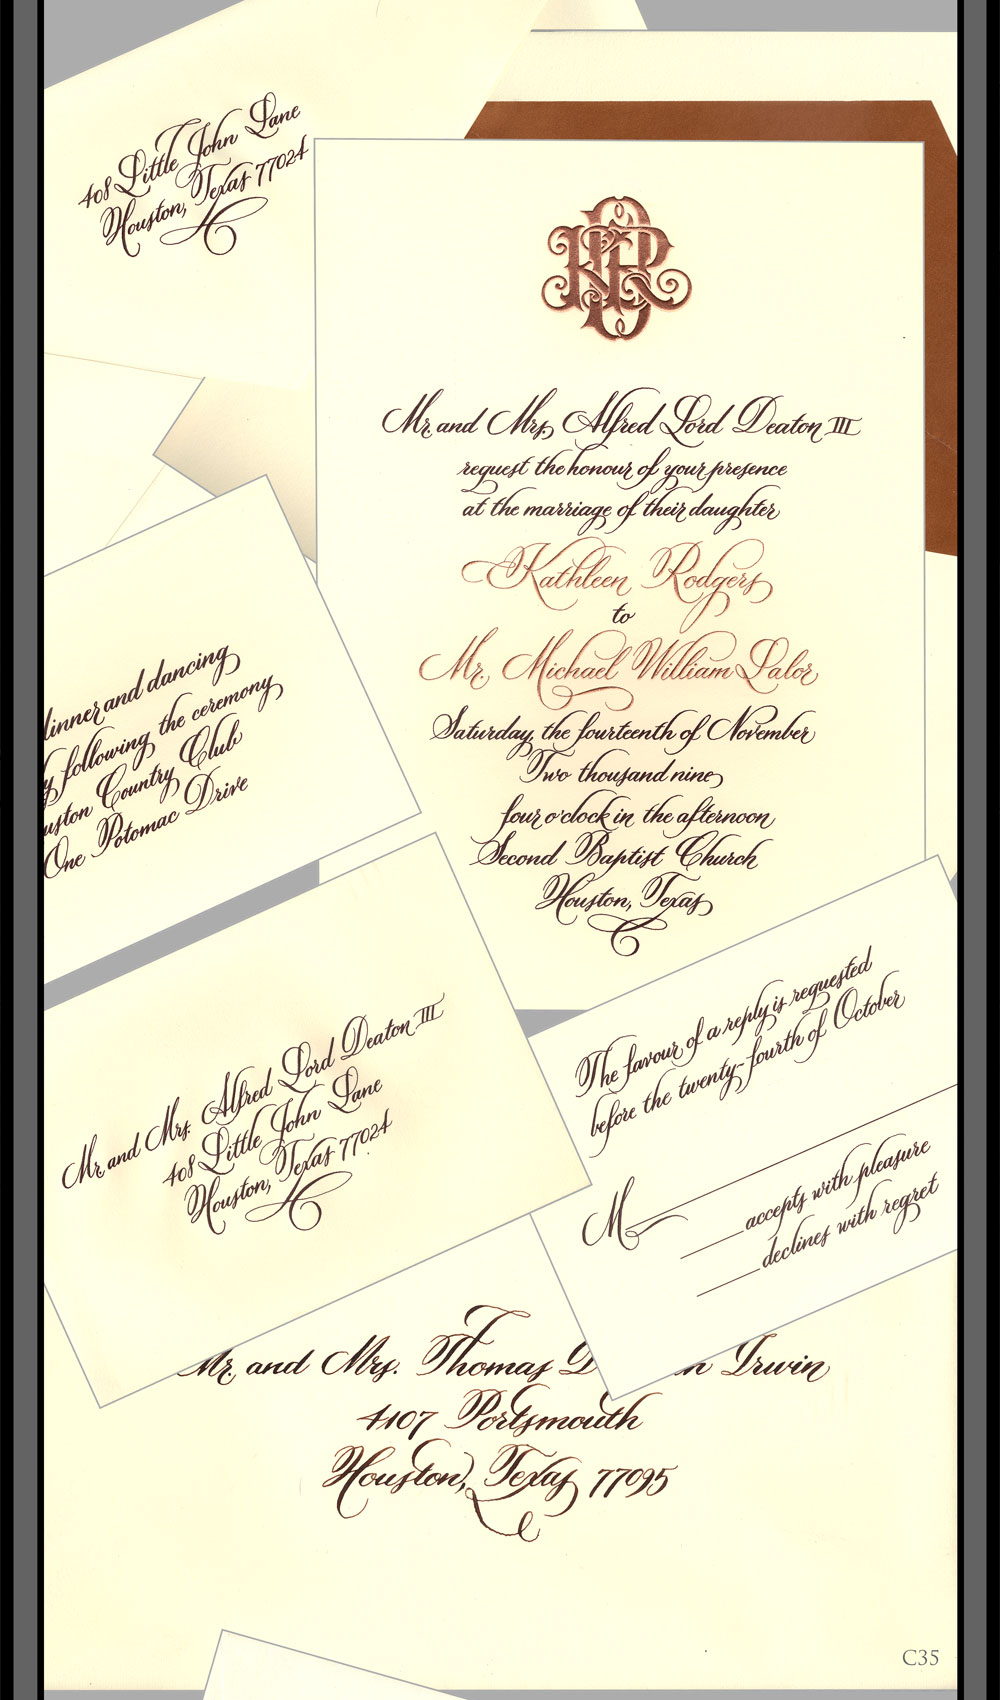 408 Little John Lane
Houston, Texas 77024
Mr. and Mrs. Alfred Lord Deaton III
request the honour of your presence
at the marriage of their daughter
Kathleen Rodgers
to
Mr. Michael William Lalor
Saturday, the fourteenth of November
Two thousand nine
four o'clock in the afternoon
Second Baptist Church
Houston, Texas
and dancing
following the ceremony
Country Club
One Potomac Drive
Mr. and Mrs. Alfred Lord Deaton III
408 Little John Lane
Houston, Texas 77024
The favour of a reply is requested
before the twenty-fourth of October
M
accepts with pleasure
declines with regret
Mr. and Mrs. Thomas Irwin
4107 Portsmouth
Houston, Texas 77095
C35